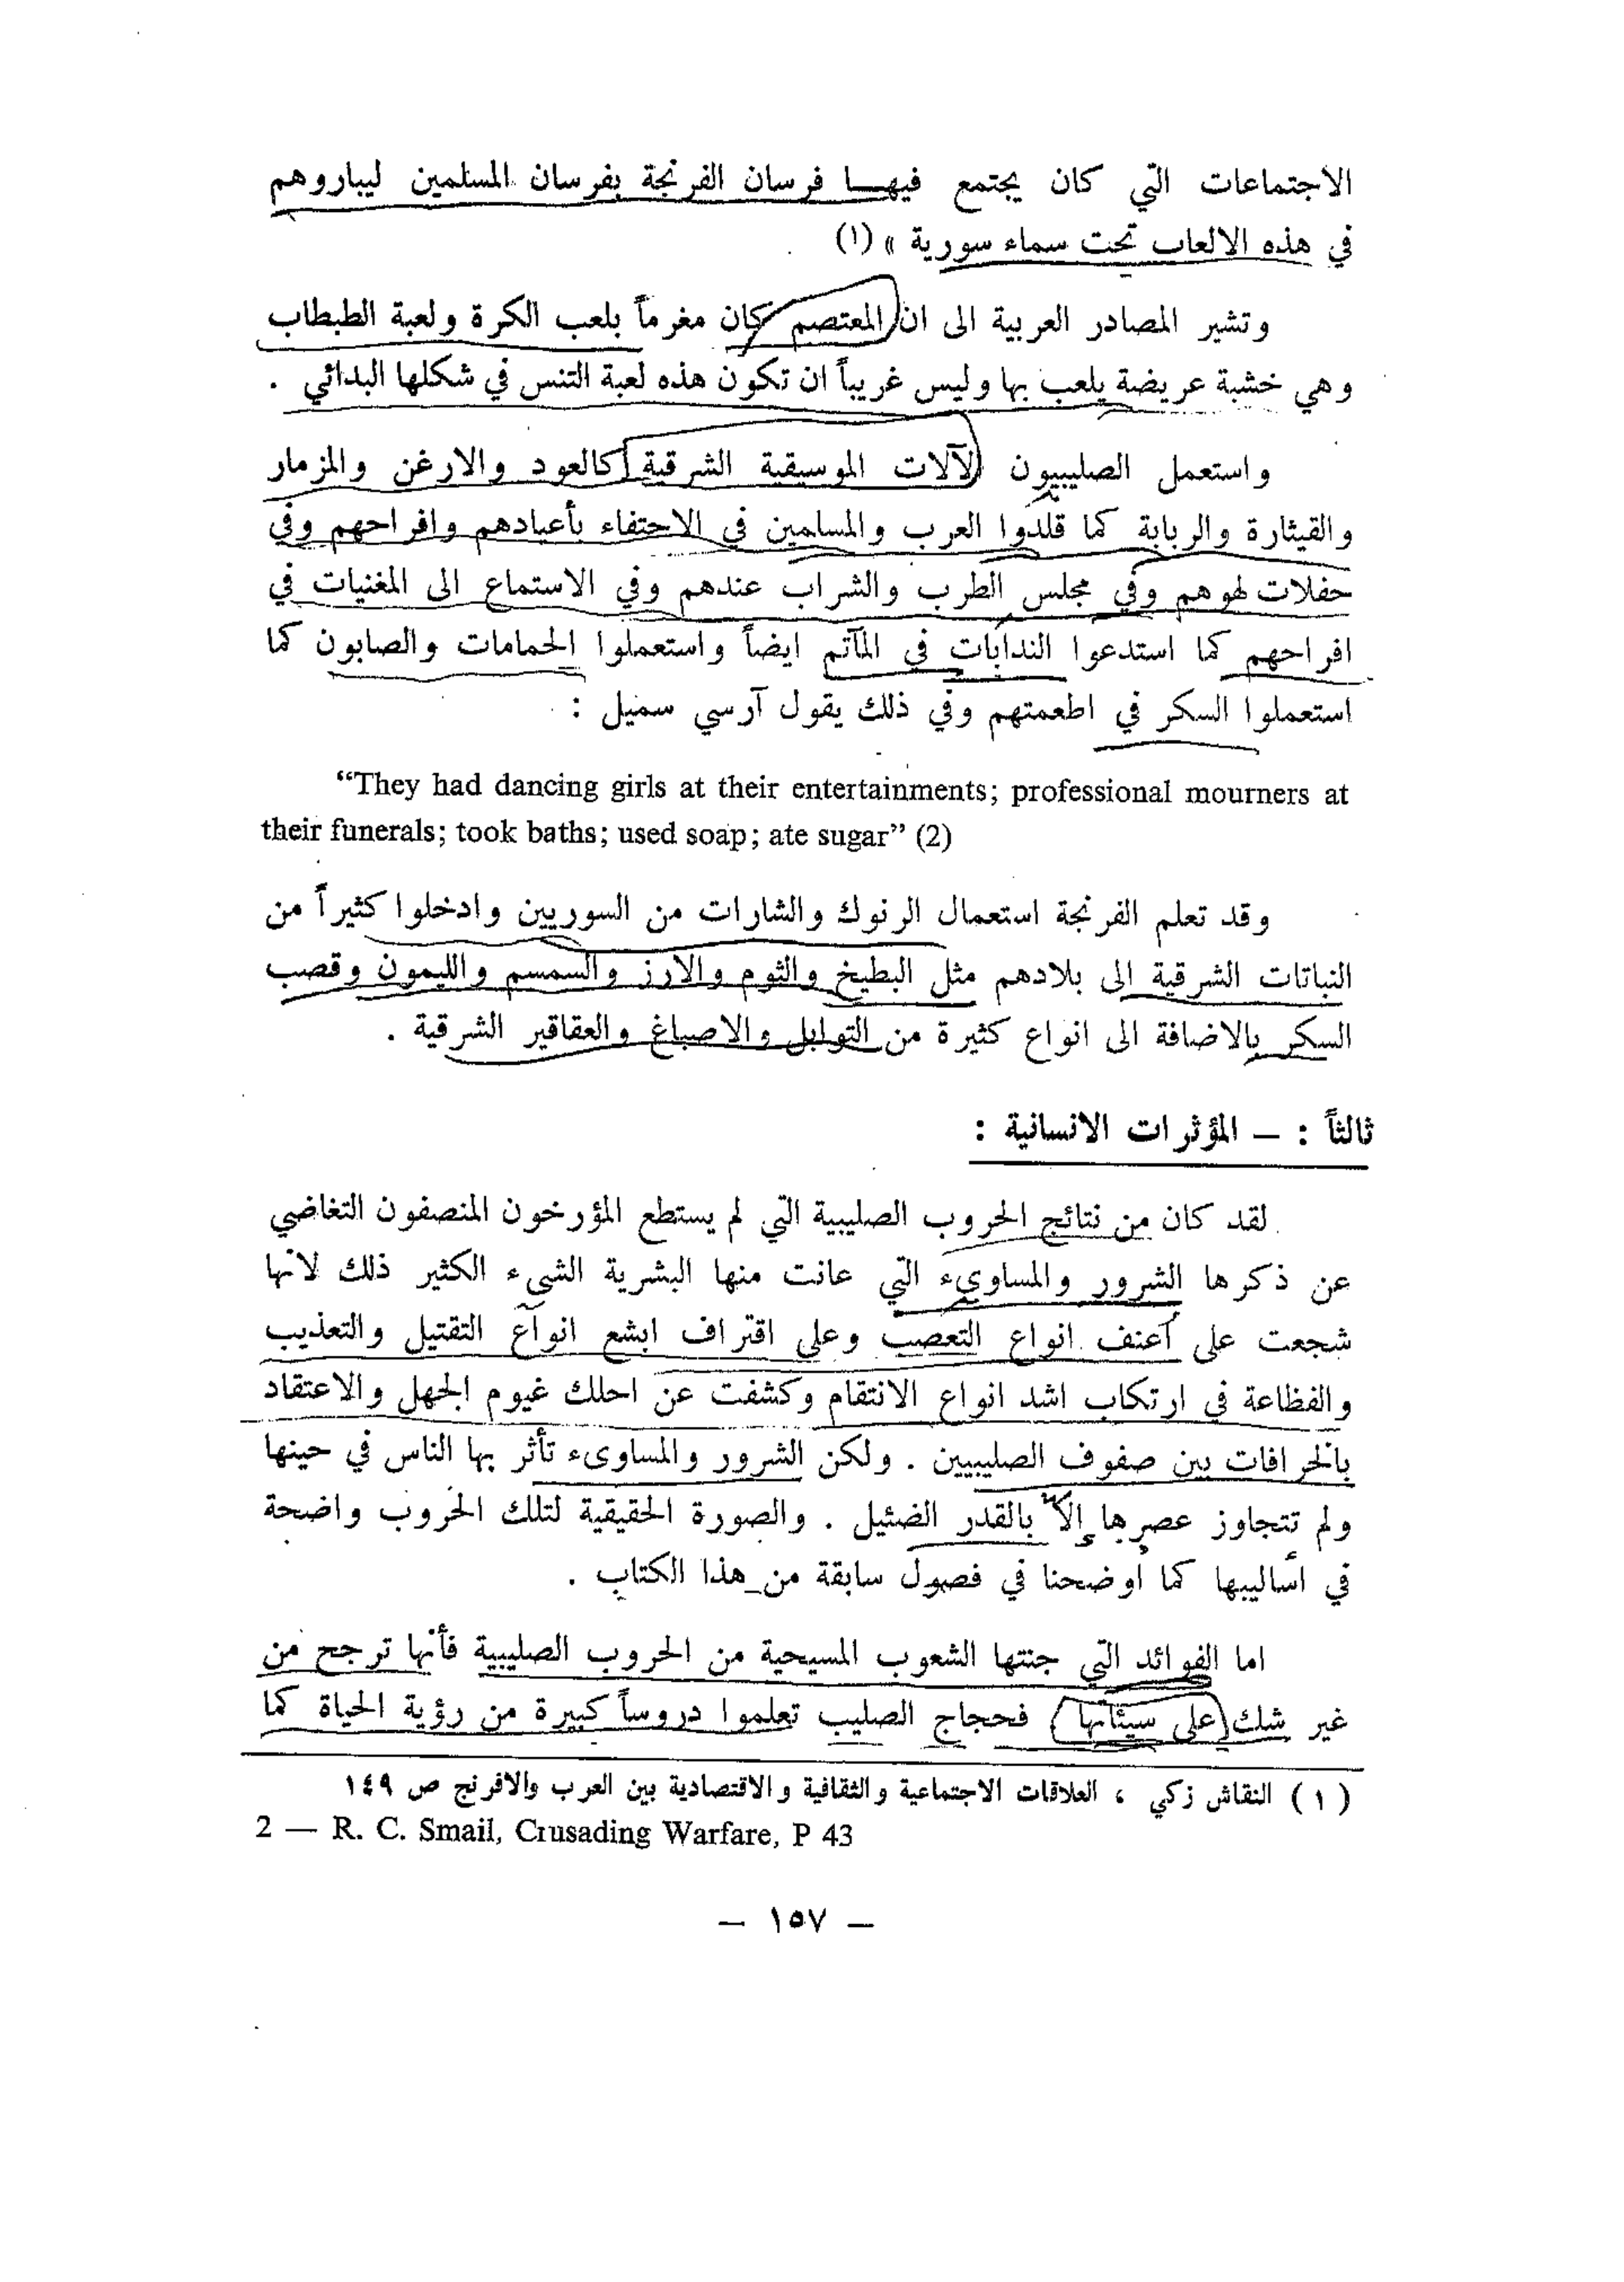 الاجتماعات التي كان يجتمع فيهـــا فرسان الفرنجة بفرسان المسلمين ليباروهم
في هذه الالعاب تحت سماء سورية » (١)
وتشير المصادر العربية الى ان المعتصم كان مغرماً بلعب الكرة ولعبة الطبطاب
وهي خشبة عريضة يلعب بها وليس غريباً ان تكون هذه لعبة التنس في شكلها البدائي .
واستعمل الصليبيون الآلات الموسيقية الشرقية كالعود والارغن والمزمار
والقيثارة والربابة كما قلدوا العرب والمسلمين في الاحتفاء بأعيادهم وافراحهم وفي
حفلات لهوهم وفي مجلس الطرب والشراب عندهم وفي الاستماع الى المغنيات في
افراحهم كما استدعوا الندابات في المآتم ايضاً واستعملوا الحمامات والصابون كما
استعملوا السكر في اطعمتهم وفي ذلك يقول آرسي سميل :
“They had dancing girls at their entertainments; professional mourners at
their funerals; took baths; used soap; ate sugar” (2)
وقد تعلم الفرنجة استعمال الرنوك والشارات من السوريين وادخلوا كثيراً من
النباتات الشرقية الى بلادهم مثل البطيخ والثوم والارز والسمسم والليمون وقصب
السكر بالاضافة الى انواع كثيرة من التوابل والاصباغ والعقاقير الشرقية .
ثالثاً : — المؤثرات الانسانية :
لقد كان من نتائج الحروب الصليبية التي لم يستطع المؤرخون المنصفون التغاضي
عن ذكرها الشرور والمساوىء التي عانت منها البشرية الشيء الكثير ذلك لانها
شجعت على أعنف انواع التعصب وعلى اقتراف ابشع انواع التقتيل والتعذيب
والفظاعة في ارتكاب اشد انواع الانتقام وكشفت عن احلك غيوم الجهل والاعتقاد
بالخرافات بين صفوف الصليبيين . ولكن الشرور والمساوىء تأثر بها الناس في حينها
ولم تتجاوز عصرها إلا بالقدر الضئيل . والصورة الحقيقية لتلك الحروب واضحة
في أساليبها كما أوضحنا في فصول سابقة من هذا الكتاب .
اما الفوائد التي جنتها الشعوب المسيحية من الحروب الصليبية فأنها ترجح من
غير شك على سيئاتها فحجاج الصليب تعلموا دروساً كبيرة من رؤية الحياة كما
(١) النقاش زكي ، العلاقات الاجتماعية والثقافية والاقتصادية بين العرب والافرنج ص ١٤٩
2 — R. C. Smail, Crusading Warfare, P 43
— ١٥٧ —